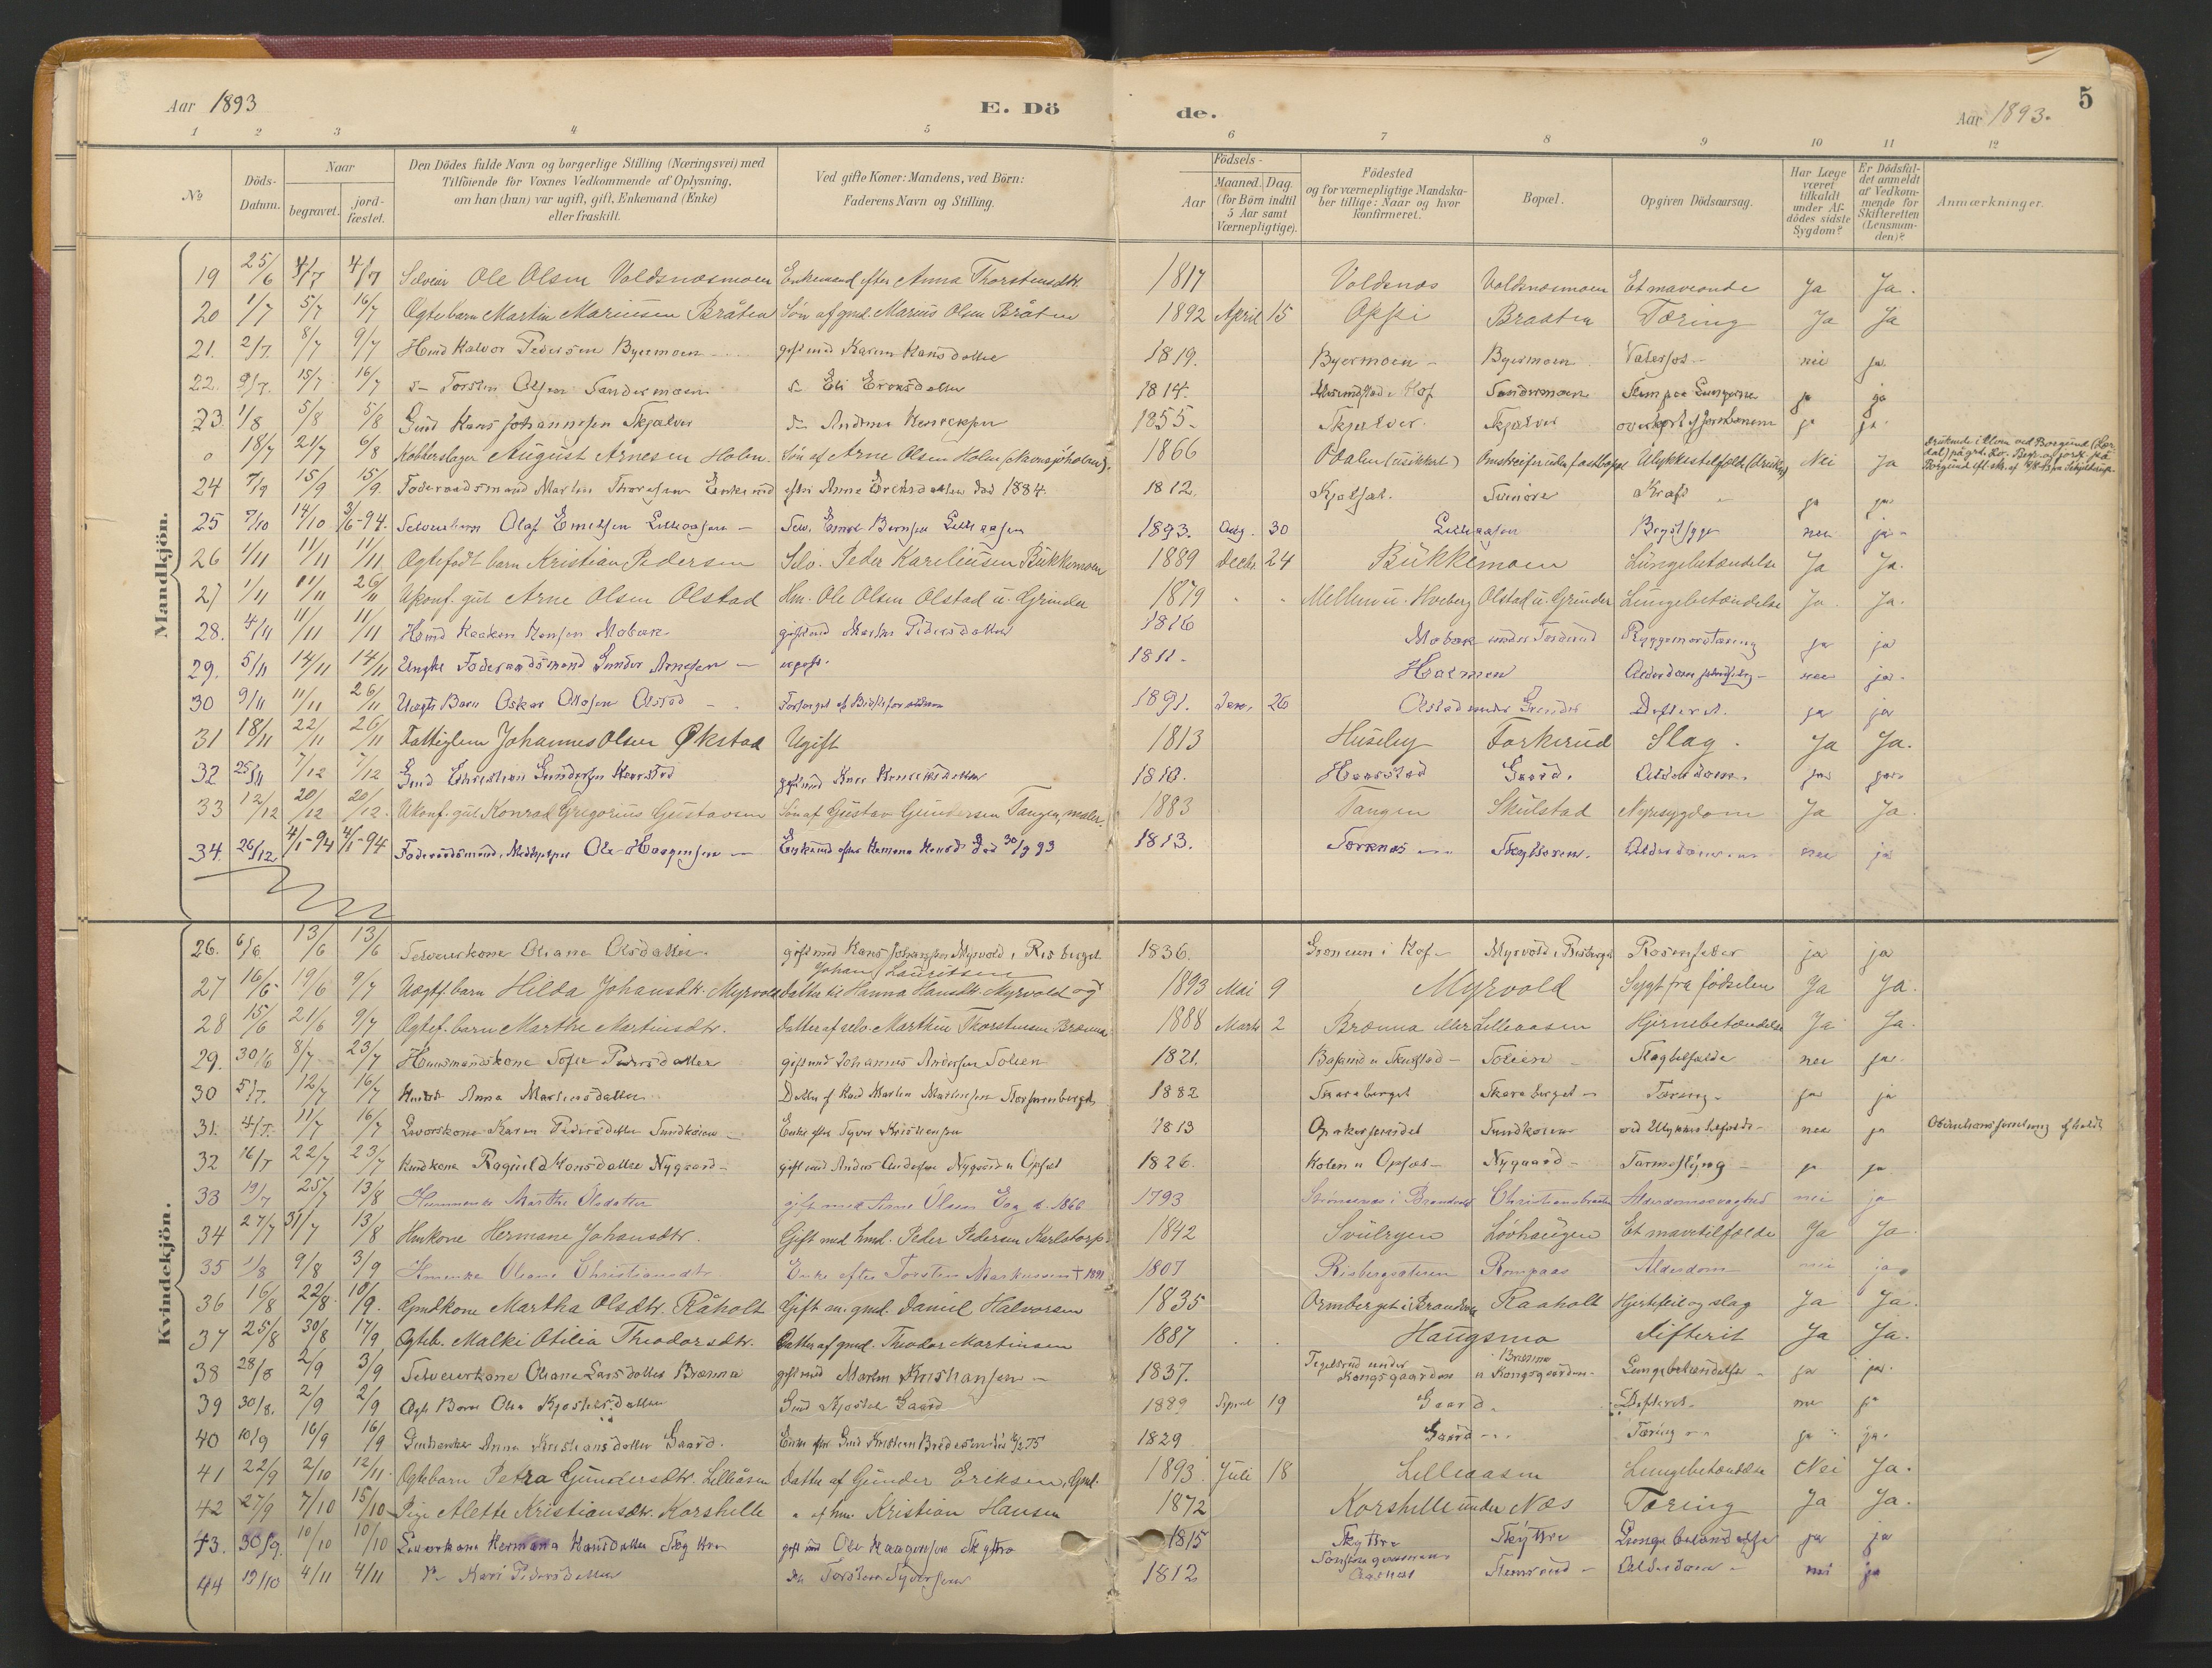 Aar 1893 E. Dö de. Aar 1893. 5
1 2 3 4 5 6 7 8 9 10 11 12
No
Döds-Datum.
Naar
begravet.
jordfæstet.
Den Dödes fulde Navn og borgerlige Stilling (Næringsvei) med
Tilföiende for Voxnes Vedkommende af Oplysning,
om han (hun) var ugift, gift, Enkemand (Enke)
eller fraskilt.
Ved gifte Koner: Mandens, ved Börn:
Faderens Navn og Stilling.
Födsels-
Aar
Maaned. Dag.
(for Börn indtil
5 Aar samt
Værnepligtige).
Födested
og for værnepligtige Mandskaber tillige: Naar og hvor
konfirmeret.
Bopæl.
Opgiven Dödsaarsag.
Har Læge
været
tilkaldt
under Afdödes sidste
Sygdom?
Er Dödsfaldet anmeldt
af Vedkommende for
Skifteretten
(Lensmanden)?
Anmærkninger.
Mandkjön.
19 25/6 4/7 4/7 Selveier Ole Olsen Voldsnæsmoen Enkemand efter Anna Thorstensdtr. 1817 Voldsnæs Voldsnæsmoen Et maveonde Ja Ja.
20 1/7 5/7 16/7 Ægtebarn Martin Mariusen Bråten Søn af gmd. Marius Olsen Bråten 1892 April 15 Opsti Braaten Tæring Ja Ja
21. 2/7. 8/7 9/7 Hmd Halvor Pedersen Byermoen gift med Karen Hansdatter 1819. Byermoen Byermoen Vatersot nei ja
22. 9/7. 15/7 16/7 Torsten Olsen Sandermoen Eli Eriksdatter 1814. Sandermoen ja ja
23. 1/8 5/8 5/8 Gmd Hans Johannesen Skjølver Andrea Henriksen 1855. Skjølver Skjølver overkjørt af Jernbanen ja ja.
0 18/7 21/7 6/8 Kobberslager August Arnesen Holm. Søn af Arne Olsen Holm 1866 Odalen (usikkert) Omstreifer uden fast bopæl Ulykkestilfælde (druknet) Nei Ja
24 7/9 15/9 15/9. Foderaadsmand Martin Thoresen Enkemd efter Anne Eriksdatter død 1884. 1812. ja ja
25 7/10 14/10 3/6-94. Selveierbarn Olaf Emilsen Lilleaasen Selv. Emil Bernsen Lilleaasen 1893. Aug. 30 Lilleaasen Brystsyge nei ja
26 1/11 11/11 11/11. Ægtefødt barn Kristian Pedersen Selv. Peder Kareliusen Bukkemoen 1889 Decbr 24 Bukkemoen Lungebetændelse Ja Ja.
27 1/11 11/11 26/11 Ukonf. gut Arne Olsen Olstad Hm. Ole Olsen Olstad u. Grinder 1879 " " Mellem u. Hveberg Olstad u. Grinder Lungebetændelse Ja Ja.
28. 4/11 11/11 11/11 Hmd Haaken Hansen Mobæk gift med Marthe Pedersdatter 1816 Mobæk under Torderud Ryggemarvtæring ja ja
29. 5/11 14/11 14/11 Ungkr Foderaadsmand Gunder Arnesen ugift. 1811. Holmen nei ja.
30 9/11 11/11 26/11 Uægte Barn Oskar Olafsen Olstad 1891. Jan. 26 Olstad under Grinder Difterit. ja ja
31 18/11 22/11 26/11 Fattiglem Johannes Olsen Økstad Ugift 1813 Huseby Torkerud Slag. Ja Ja.
32 25/11 7/12 7/12 Gmd Christian Gundersen Haarstad gift med Kari Henriksdatter 1810. Haarstad Gaard. Alderdom. ja ja
33 12/12 20/12 20/12. Ukonf. gut. Konrad Gregorius Gustavsen Søn af Gustav Gundersen Tangen, maler. 1883 Tangen Skulstad Nyresygdom Ja Ja.
34. 26/12 4/1-94 4/1-94 Foderaadsmand, Medhjelper Ole Haagensen Enkemd efter Hermana Hansd. død 30/9 93 1813. Torknæs Skytteren. Alderdom nei ja
Kvindekjön.
26. 6/6. 13/6 13/6 Selveierkone Oliane Olsdatter gift med Hans Johansen Myrvold i Risberget 1836. Gronuen i Hof Myrvold i Risberget Rosenfeber ja ja
Johan Lauritsen
27 16/5 19/6 9/7 Uægtf. barn Hilda Johansdtr. Myrvold datter til Hanna Hansdtr. Myrvold og 1893 Mai 9 Myrvold Sygt fra fødselen Ja Ja.
28 15/6 21/6 9/7 Ægtef. barn Marthe Martinsdtr. Datter af selv. Marthin Thorstensen Brænna 1888 Marts 2 Brænna eller Lilleaasen Hjernebetændelse Ja Ja.
29. 30/6 8/7 23/7 Husmandskone Sofie Pedersdatter gift med Johannes Andersen Solien 1821. Solien Slagtilfælde nei ja
30 5/7. 12/7 16/7 Anna Martinsdatter 1882 Skaraberget Skaraberget Tæring ja ja
31. 4/7. 11/7 16/7 Karen Pedersdatter Sundkoien Enke efter Syver Kristiansen 1813 Opakermoidet Sundkoien ved Ulykkestilfælde nei ja Obduktionsforretning afholdt
32 16/7 22/7 23/7 Hmdkone Ragnild Hansdatter Nygaard gift med Anders Andersen Nygaard u Opset 1826. Holen u Opset Nygaard Tarmslyng ja ja
33 19/7 25/7 13/8 Hmenke Marthe Olsdatter gift med Arne Olsen Eng d. 1866 1793 Christiansbraaten Alderdomssvaghed nei ja
34 27/7 31/7 13/8 Hmkone Hermane Johansdtr. Gift med hmd. Peder Pedersen Karlstorp 1842 Svulryen Løvhaugen Et mavetilfælde Ja Ja.
35 1/8 9/8 3/9 Hmenke Oliane Christiansdtr. Enke efter Torsten Markussen † 1891 1807 Risbergsæteren Rompaas Alderdom nei ja
36 16/8 22/8. 10/9. Gmdkone Martha Olsdtr. Råholt Gift m. gmd. Daniel Halvorsen 1835 Ormberget i Brandval Raaholt Hjertefeil og slag Ja Ja.
37 25/8 30/8 17/9 Ægteb. Malki Otilia Theodorsdtr. Datter af gmd. Theodor Martinsen 1887 Haugsmo difterit Ja Ja.
38 28/8 2/9 3/9 Selveierkone Oliane Larsdatter Brænna gift med Martin Kristiansen 1837. Tegelsrud under Kongsgaarden Brænna u Kongsgaarden Lungebetændelse ja ja.
39 30/8. 2/9 2/9 Ægte Barn Olea Kjøstelsdatter Gmd Kjøstel Gaard 1889 April 19 Gaard. Difterit. nei ja
40 10/9 16/9 16/9 Gmdenke Anna Kristiansdatter Gaard. Enke efter Gmd Kristian Bredesen 1829 Gaard Tæring ja ja.
41 22/9 2/10 12/11 Ægtebarn Petra Gundersdtr. Lilleåsen datter af Gunder Eriksen, Gmd. 1893 Juli 18 Lilleaasen Lungebetændelse Nei Ja.
42 27/9 7/10 15/10 Pige Alette Kristiansdtr. Korshelle " af hm. Kristian Hansen 1872 Korshelle under Næs Tæring Ja Ja.
43. 30/9. 10/10 10/10 Hermana Hansdatter Skyttre gift med Ole Haagensen Skyttre 1815 Skyttre Skyttre Lungebetændelse ja ja
44 19/10 4/11 4/11 Kari Pedersdatter Torsten Syversen 1812 Stemsrud Alderdom nei ja